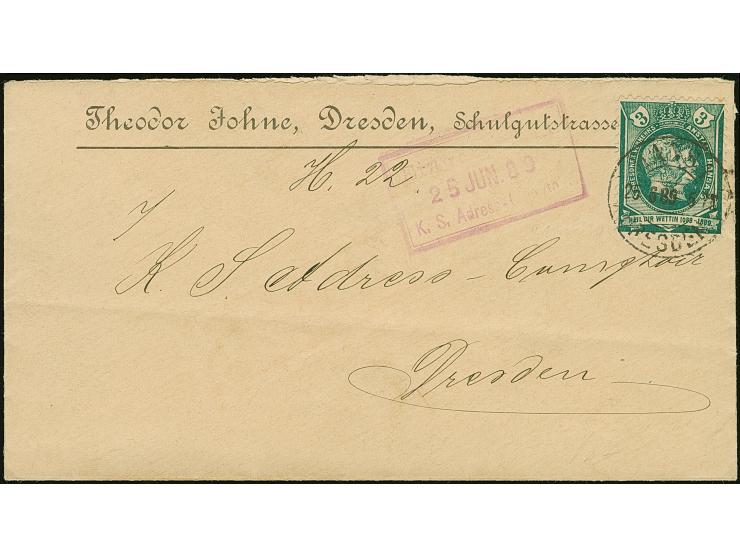 Theodor Johne, Dresden, Schulgutstrasse
3 3
HEIL DIR WETTIN 1089-1889.
25 JUN. 89
K. S. Adress-
H. 22.
K S Address-Comptoir
Dresden